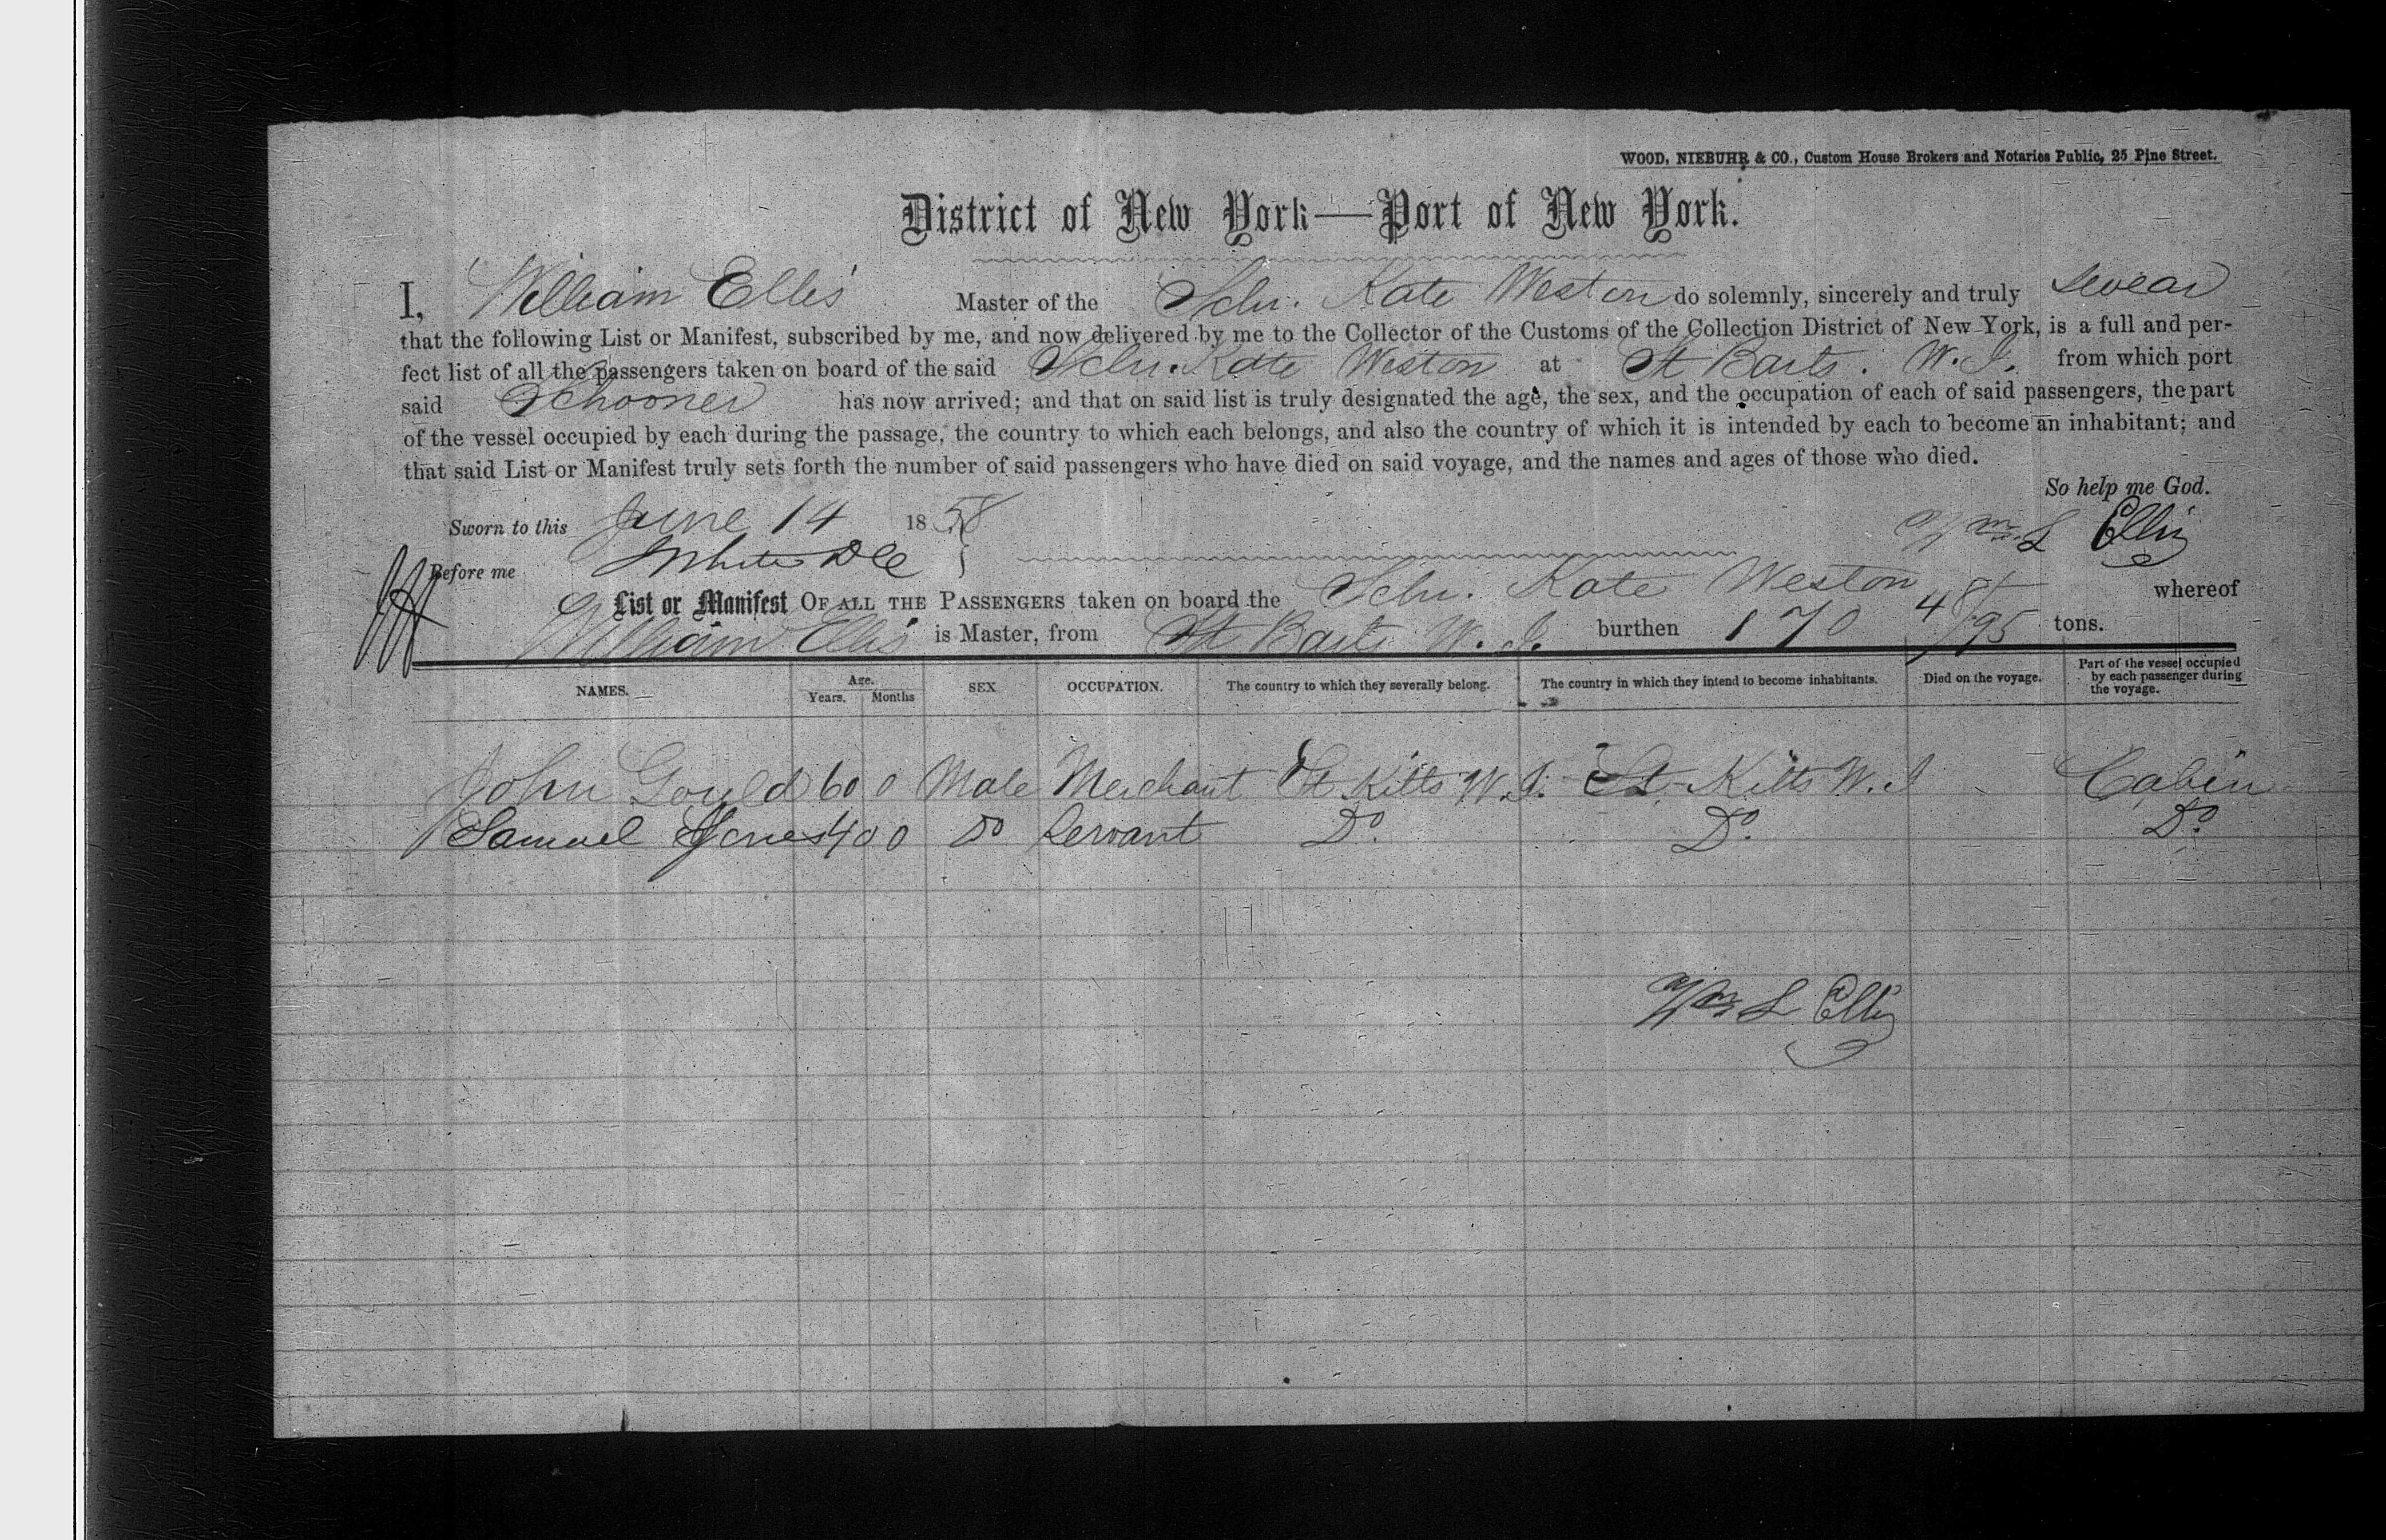 WOOD, NIEBUHR & CO., Custom House Brokers and Notaries Public, 25 Pine Street.
District of New York—Port of New York.
I, William Ellis Master of the Schr. Kate Weston do solemnly, sincerely and truly swear
that the following List or Manifest, subscribed by me, and now delivered by me to the Collector of the Customs of the Collection District of New York, is a full and per-
fect list of all the passengers taken on board of the said Schr. Kate Weston at St Barts. W. I. from which port
said Schooner has now arrived; and that on said list is truly designated the age, the sex, and the occupation of each of said passengers, the part
of the vessel occupied by each during the passage, the country to which each belongs, and also the country of which it is intended by each to become an inhabitant; and
that said List or Manifest truly sets forth the number of said passengers who have died on said voyage, and the names and ages of those who died.
So help me God.
Sworn to this June 14 1858 Wm L Ellis
Before me White
List or Manifest OF ALL THE PASSENGERS taken on board the Schr. Kate Weston whereof
William Ellis is Master, from St Barts W. I. burthen 170 48/95 tons.
NAMES. Age. Years. Months SEX OCCUPATION. The country to which they severally belong. The country in which they intend to become inhabitants. Died on the voyage. Part of the vessel occupied by each passenger during the voyage.
John Gould 60 0 Male Merchant St Kitts W. I. St. Kitts W. I Cabin
Samuel Jones 40 0 Do Servant Do. Do. Do.
Wm L Ellis